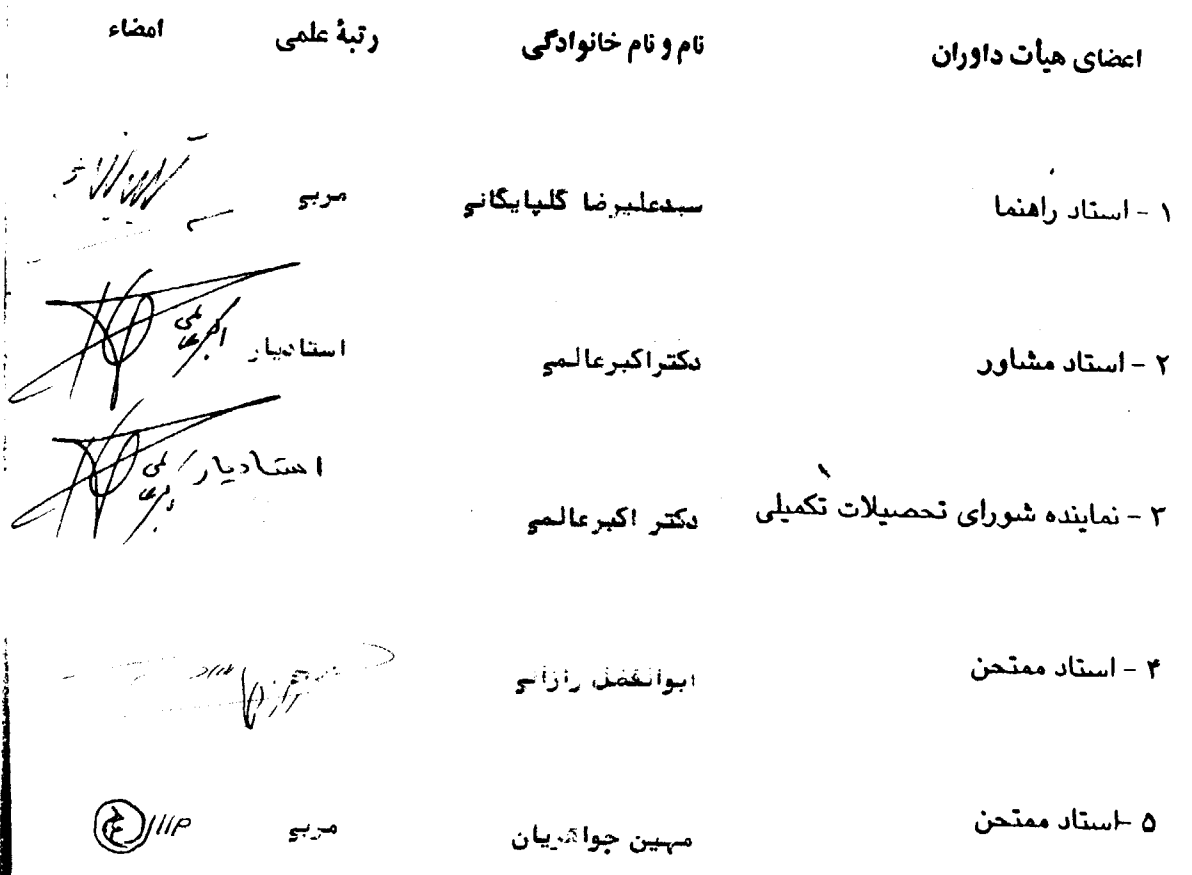 اعضای هیأت داوران نام و نام خانوادگی رتبهٔ علمی امضاء
۱ - استاد راهنما سیدعلیرضا گلپایگانی مربی
۲ - استاد مشاور دکتراکبرعالمی استادیار اکبر عالمی
۳ - نماینده شورای تحصیلات تکمیلی دکتر اکبرعالمی استادیار اکبر عالمی
۴ - استاد ممتحن ابوالفضل رازانی
۵ - استاد ممتحن مهین جواهریان مربی